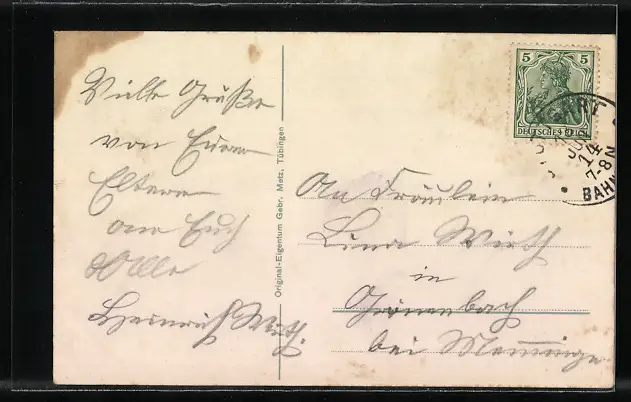 Viele Grüße
von Euern
Eltern
an Euch
Alle
Heinrich Wirth.
Original-Eigentum Gebr. Metz, Tübingen
5 5
DEUTSCHES REICH
14
7-8N
BAHN
An Fräulein
Lina Wirth
in
Grönenbach
bei Memmingen